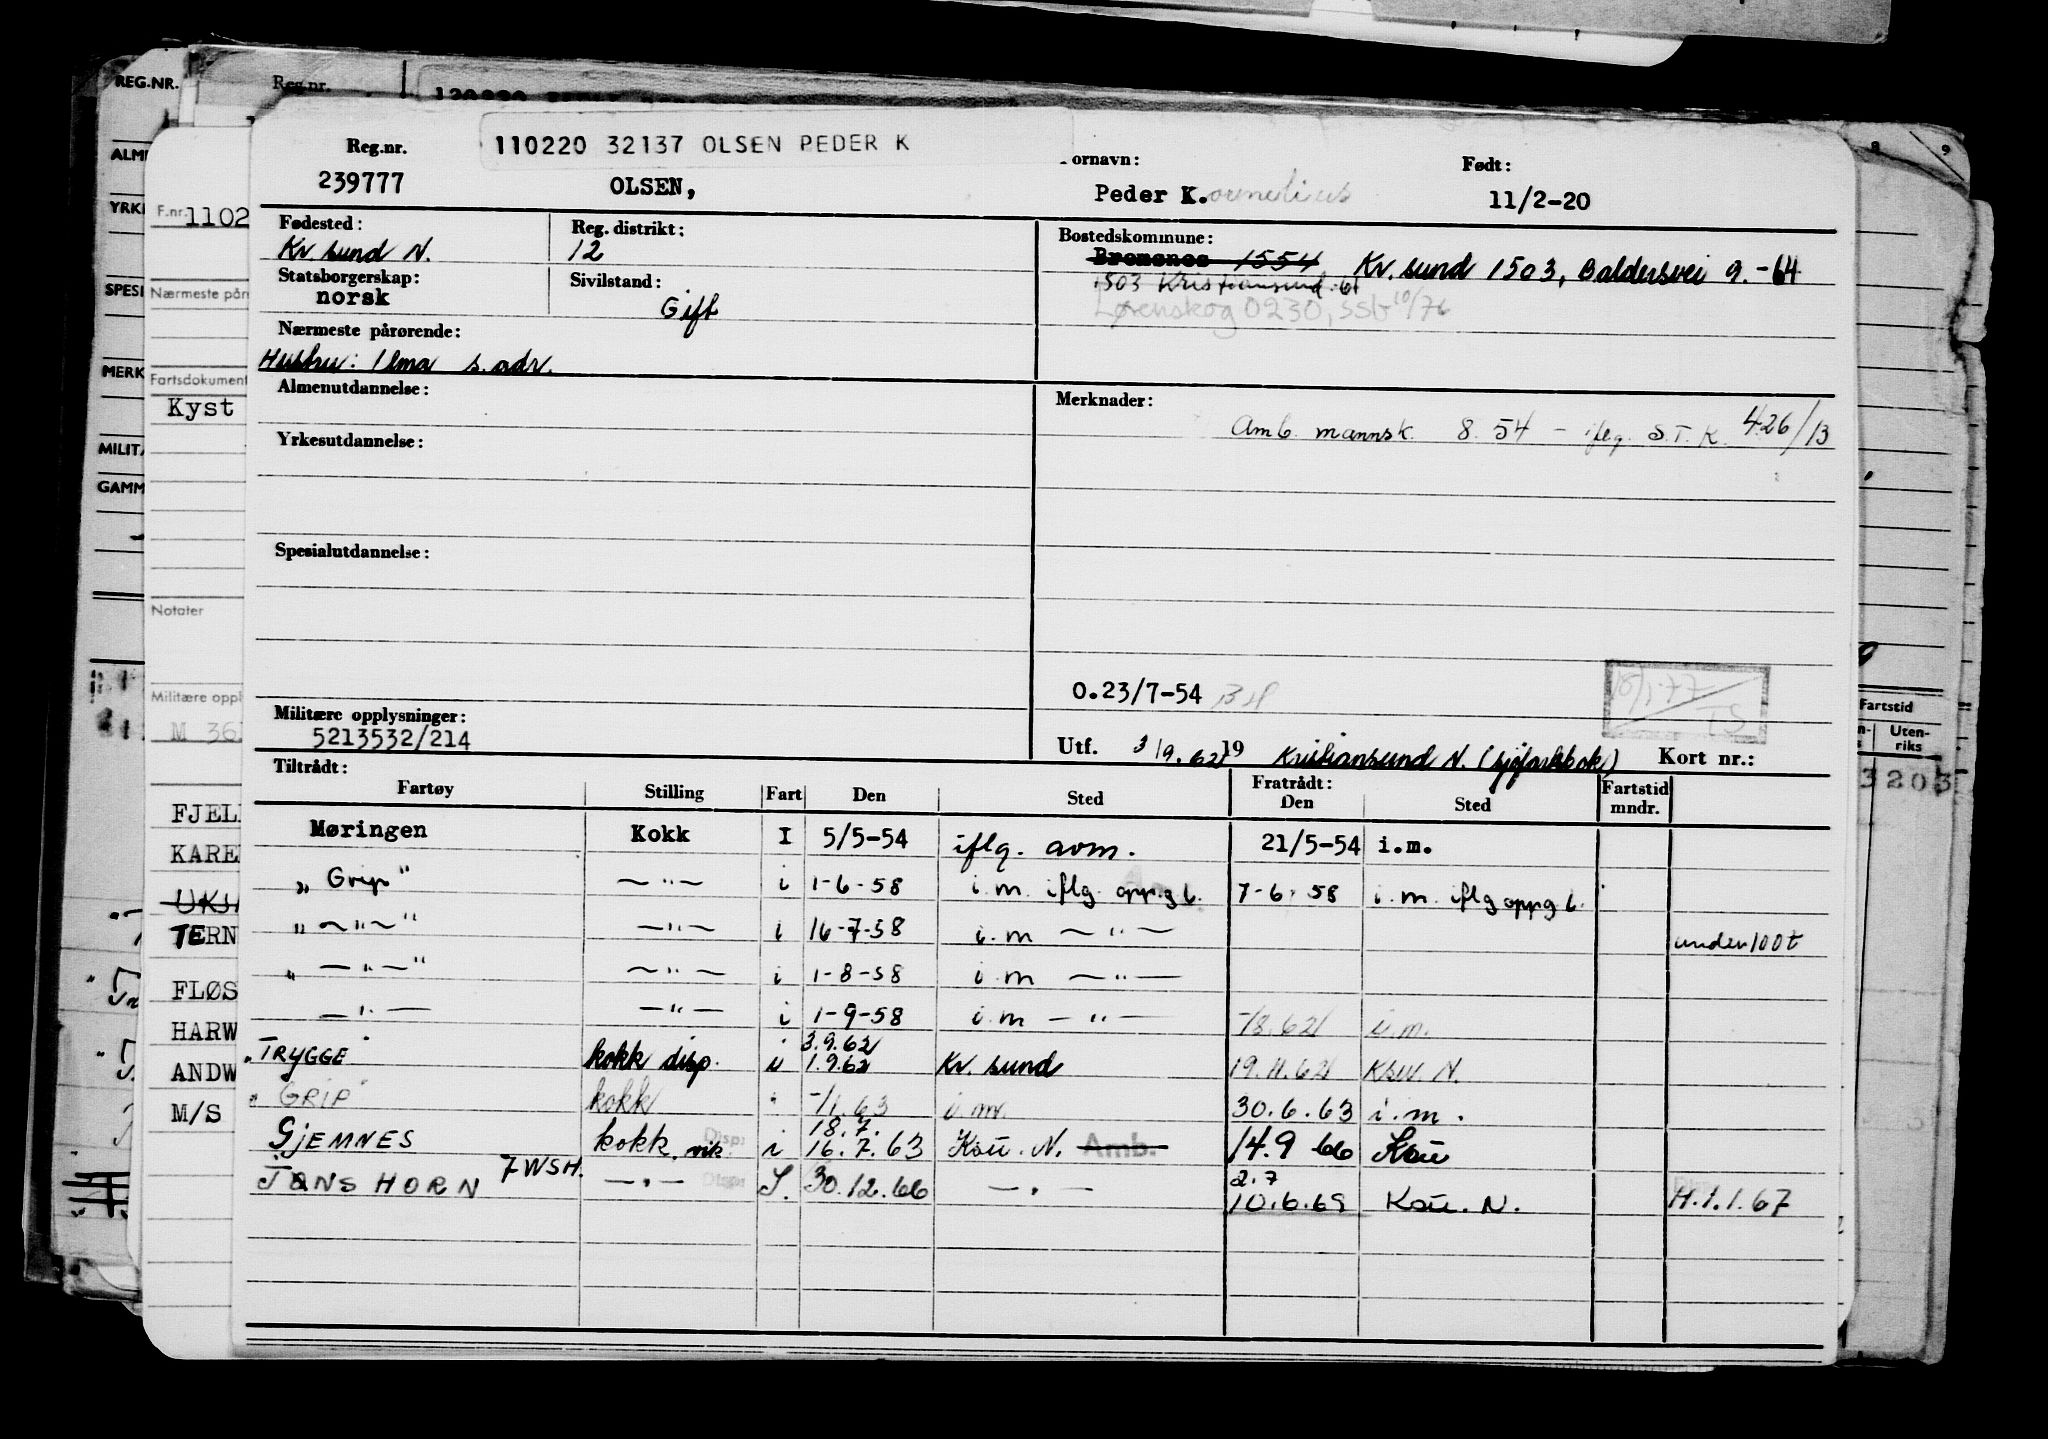 REG.NR.
Reg.nr.
F.nr. 1102
Nærmeste pår
Fartsdokument
Kyst
Notater
Militære oppl
M 36
FJEL
KARE
TERN
FLØS
HARW
ANDW
M/S
YRK
SPESI
MERK
MILIT
GAMM
110220 32137 OLSEN PEDER K
Reg.nr. ornavn: Født:
239777 OLSEN, Peder K.ornelius 11/2-20
Fødested: Reg. distrikt: Bostedskommune:
Kr. sund N. 12 Bremsnes 1554 Kr. sund 1503, Baldersvei 9.-64
Statsborgerskap: Sivilstand: 1503 Kristiansund 61
norsk Gift Lørenskog 0230, SSB 10/76
Nærmeste pårørende:
Hustru: Ilma s. adr.
Almenutdannelse: Merknader:
Amb. mannsk. 8.54 - iflg. S.T.K. 426/13
Yrkesutdannelse:
Spesialutdannelse:
O.23/7-54
18/1-77
TS
Militære opplysninger:
5213532/214
Utf. 3/9.62 19 Kristiansund N. (sjøfartsbok) Kort nr.:
Tiltrådt: Fratrådt:
Fartøy Stilling Fart Den Sted Den Sted Fartstid mndr.
Møringen Kokk I 5/5-54 iflg. avm. 21/5-54 i.m.
„ Grip" — " — i 1-6-58 i.m. iflg. oppg b. 7-6-58 i.m. iflg oppg b.
„ — " — " — " — i 16-7-58 i.m — " — under 100t
„ — " — " — " — i 1-8-58 i.m — " —
— " — — " — i 1-9-58 i.m — " — -/8.62 i.m.
3.9.62
"TRYGGE" kokk disp. i 1.9.62 Kr. sund 19.11.62 Ksu. N.
"GRIP" kokk " -/1.63 i.m. 30.6.63 i.m.
18.7.
GJEMNES kokk. vik Disp: i 16.7.63 Ksu. N. Amb. 14.9 66 Ksu
2.7
JANS HORN 7WSH. — " — Disp: S. 30.12.66 — " — 10.6.69 Ksu. N. H.1.1.67
8 9
Fartstid
Uten-
riks
3203